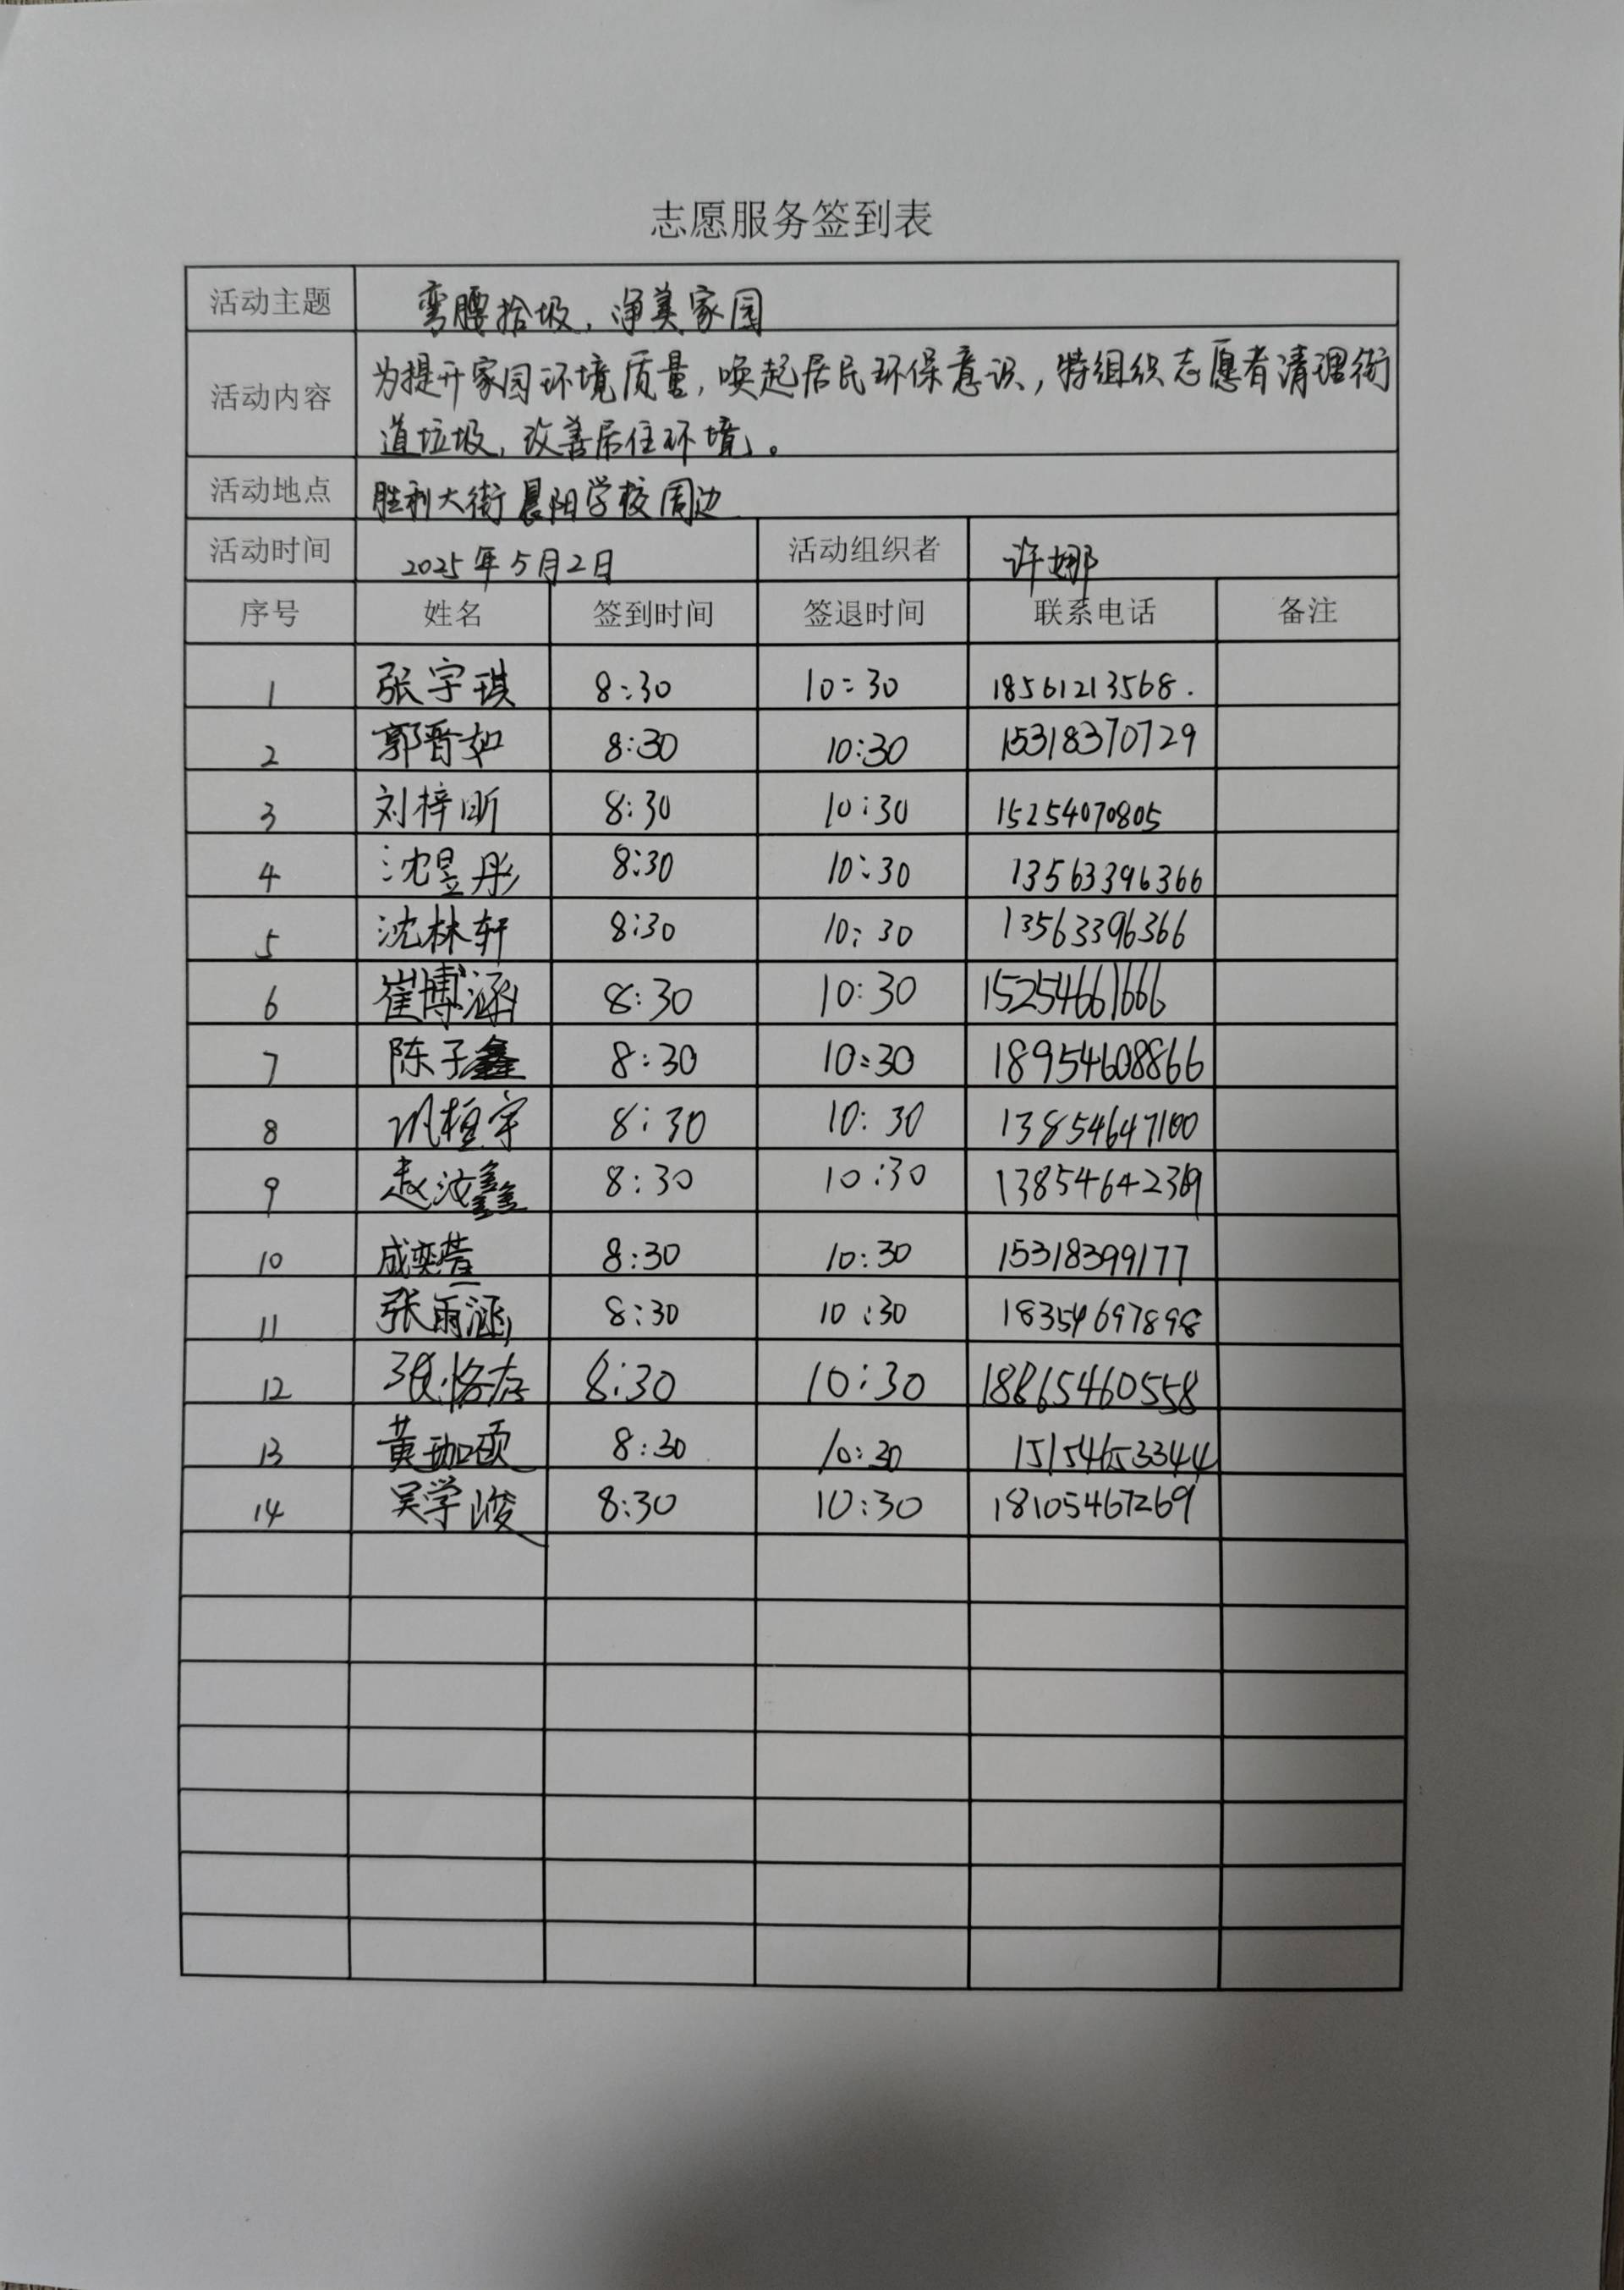 志愿服务签到表
活动主题 弯腰拾圾，净美家园
活动内容 为提升家园环境质量，唤起居民环保意识，特组织志愿者清理街
道垃圾，改善居住环境。
活动地点 胜利大街晨阳学校周边
活动时间 2025年5月2日 活动组织者 许娜
序号 姓名 签到时间 签退时间 联系电话 备注
1 张宇琪 8:30 10:30 18561213568.
2 郭晋如 8:30 10:30 15318370729
3 刘梓昕 8:30 10:30 15254070805
4 沈昱彤 8:30 10:30 13563396366
5 沈林轩 8:30 10:30 13563396366
6 崔博涵 8:30 10:30 15254661666
7 陈子鑫 8:30 10:30 18954608866
8 巩桓宇 8:30 10:30 13854647100
9 赵汝鑫 8:30 10:30
10 成奕萱 8:30 10:30 15318399177
11 张雨涵 8:30 10:30 18354697898
12 8:30 10:30 18865460558
13 黄珈硕 8:30 10:30 15154653344
14 吴学峻 8:30 10:30 18105467269